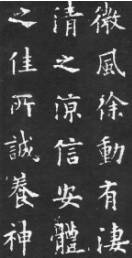 微風徐動有淒
清之涼信安體
之佳所誠養神